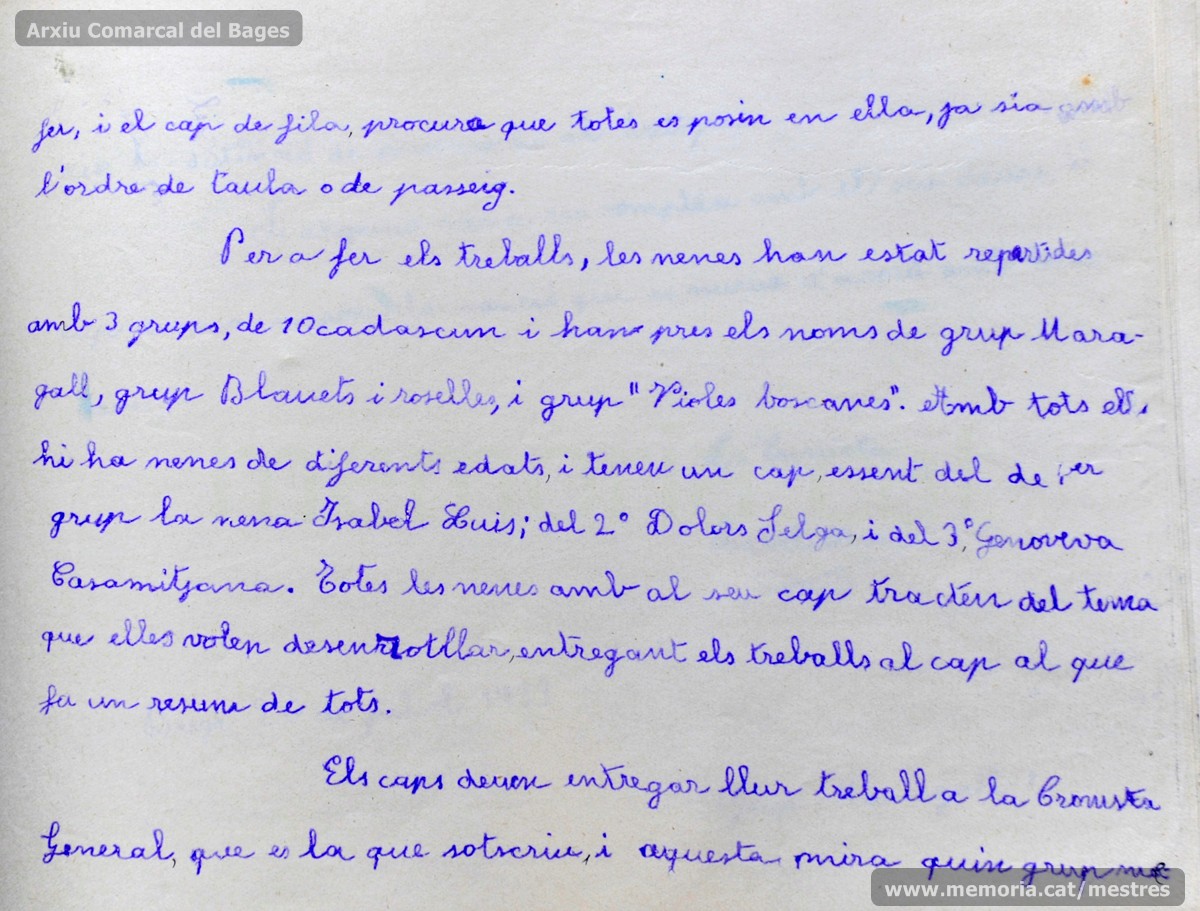 Arxiu Comarcal del Bages
fer, i el cap de fila, procura que totes es posin en ella, ja sia amb
l'ordre de taula o de passeig.
Per a fer els treballs, les nenes han estat repartides
amb 3 grups, de 10 cadascun i han pres els noms de grup Mara-
gall, grup Blauets i roselles, i grup "Violes boscanes". Amb tots ells
hi ha nenes de diferents edats, i teneu un cap, essent del de 1er
grup la nena Isabel Luis; del 2º Dolors Selga, i del 3º, Genoveva
Casamitjana. Totes les nenes amb al seu cap tracten del tema
que elles volen desenrotllar, entregant els treballs al cap al que
fa un resum de tots.
Els caps deuen entregar llur treball a la Cronista
General, que es la que sotscriu, i aquesta mira quin grup
www.memoria.cat/mestres